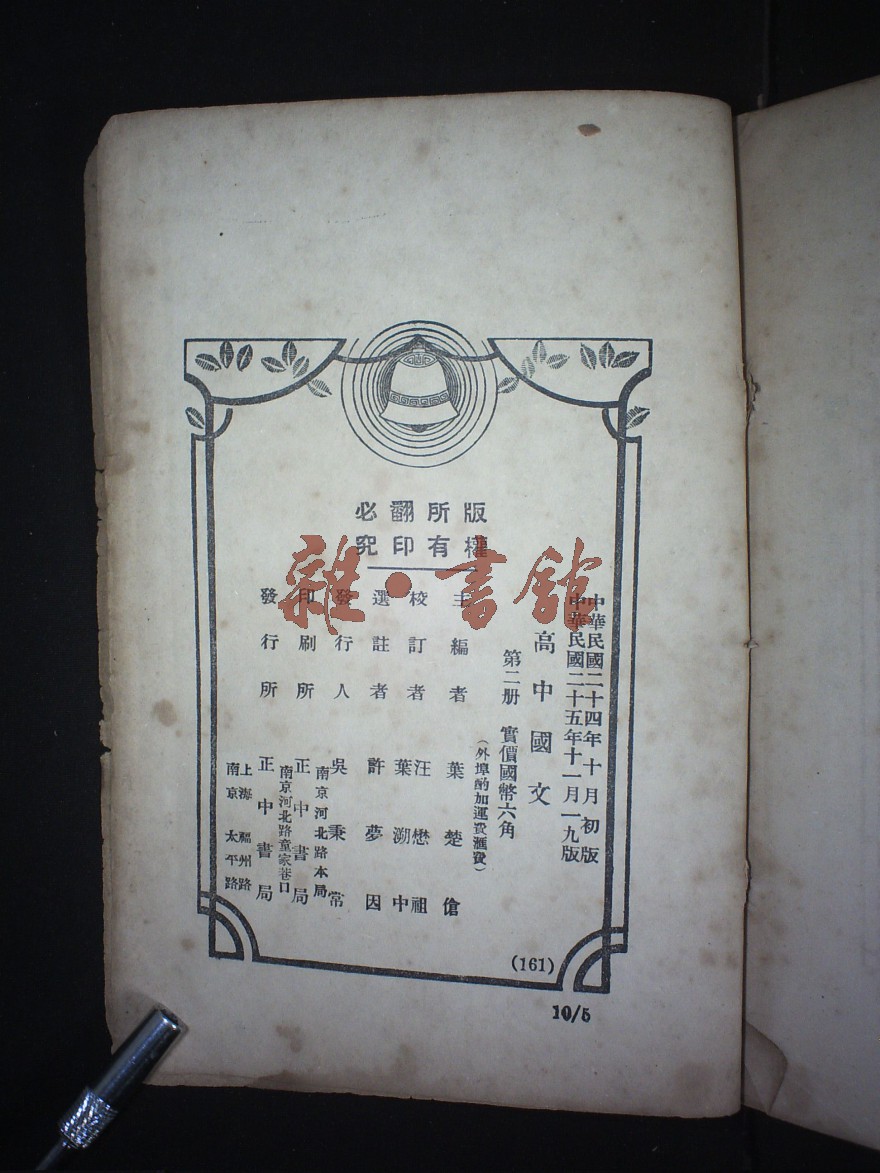 版權所有
翻印必究
中華民國二十四年十月初版
中華民國二十五年十一月一九版
高中國文
第二册 實價國幣六角
(外埠酌加運費滙費)
主編者 葉楚傖
校訂者 汪懋祖
葉溯中
選註者 許夢因
發行人 吳秉常
南京河北路本局
印刷所 正中書局
南京河北路童家巷口
發行所 正中書局
上海福州路
南京太平路
(161)
10/5
雜·書館